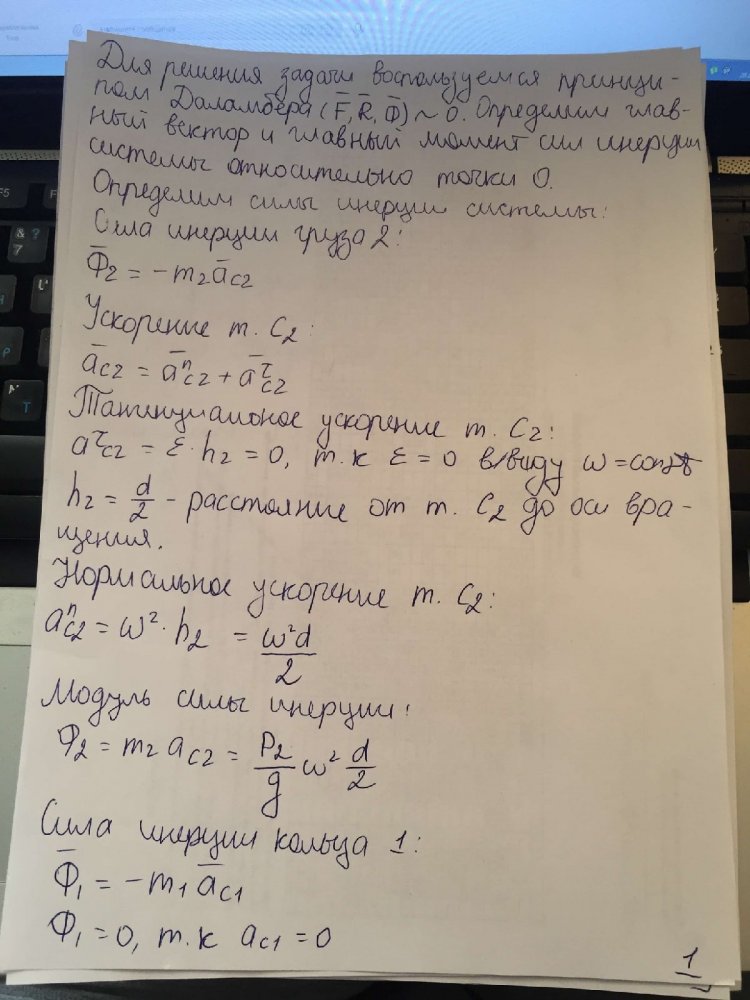 Для решения задачи воспользуемся принци-
пом Даламбера (F̄, R̄, Φ̄) ~ 0. Определим глав-
ный вектор и главный момент сил инерции
системы относительно точки O.
Определим силы инерции системы:
Сила инерции груза 2:
Φ̄₂ = -m₂ā_C2
Ускорение т. C₂:
ā_C2 = āⁿ_C2 + ā^τ_C2
Тангенциальное ускорение т. C₂:
a^τ_C2 = ε·h₂ = 0, т.к ε = 0 ввиду ω = const
h₂ = d/2 - расстояние от т. C₂ до оси вра-
щения.
Нормальное ускорение т. C₂:
aⁿ_C2 = ω²·h₂ = ω²d/2
Модуль силы инерции:
Φ₂ = m₂ a_C2 = P₂/g ω² d/2
Сила инерции кольца 1:
Φ̄₁ = -m₁ā_C1
Φ₁ = 0, т.к a_C1 = 0
1